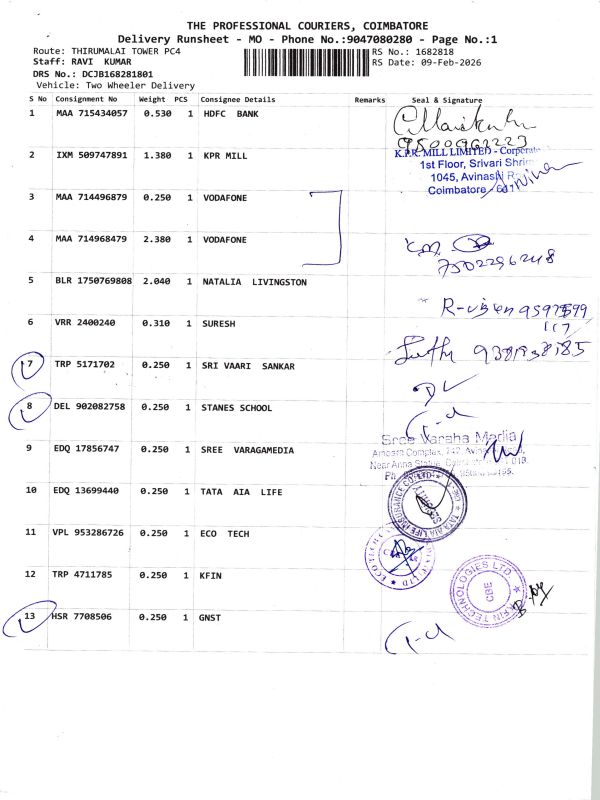 THE PROFESSIONAL COURIERS, COIMBATORE
Delivery Runsheet - MO - Phone No.:9047080280 - Page No.:1
Route: THIRUMALAI TOWER PC4
RS No.: 1682818
Staff: RAVI KUMAR
RS Date: 09-Feb-2026
DRS No.: DCJB168281801
Vehicle: Two Wheeler Delivery
S No Consignment No Weight PCS Consignee Details Remarks Seal & Signature
1 MAA 715434057 0.530 1 HDFC BANK
9500962223
2 IXM 509747891 1.380 1 KPR MILL
K.P.R. MILL LIMITED - Corporate
1st Floor, Srivari Shrim
1045, Avinashi R
Coimbatore - 641
3 MAA 714496879 0.250 1 VODAFONE
4 MAA 714968479 2.380 1 VODAFONE
7502296248
5 BLR 1750769808 2.040 1 NATALIA LIVINGSTON
6 VRR 2400240 0.310 1 SURESH
117
7 TRP 5171702 0.250 1 SRI VAARI SANKAR
DL
8 DEL 902082758 0.250 1 STANES SCHOOL
9 EDQ 17856747 0.250 1 SREE VARAGAMEDIA
Sree Varaha Media
10 EDQ 13699440 0.250 1 TATA AIA LIFE
11 VPL 953286726 0.250 1 ECO TECH
12 TRP 4711785 0.250 1 KFIN
KFIN TECHNOLOGIES LTD.
CBE
13 HSR 7708506 0.250 1 GNST